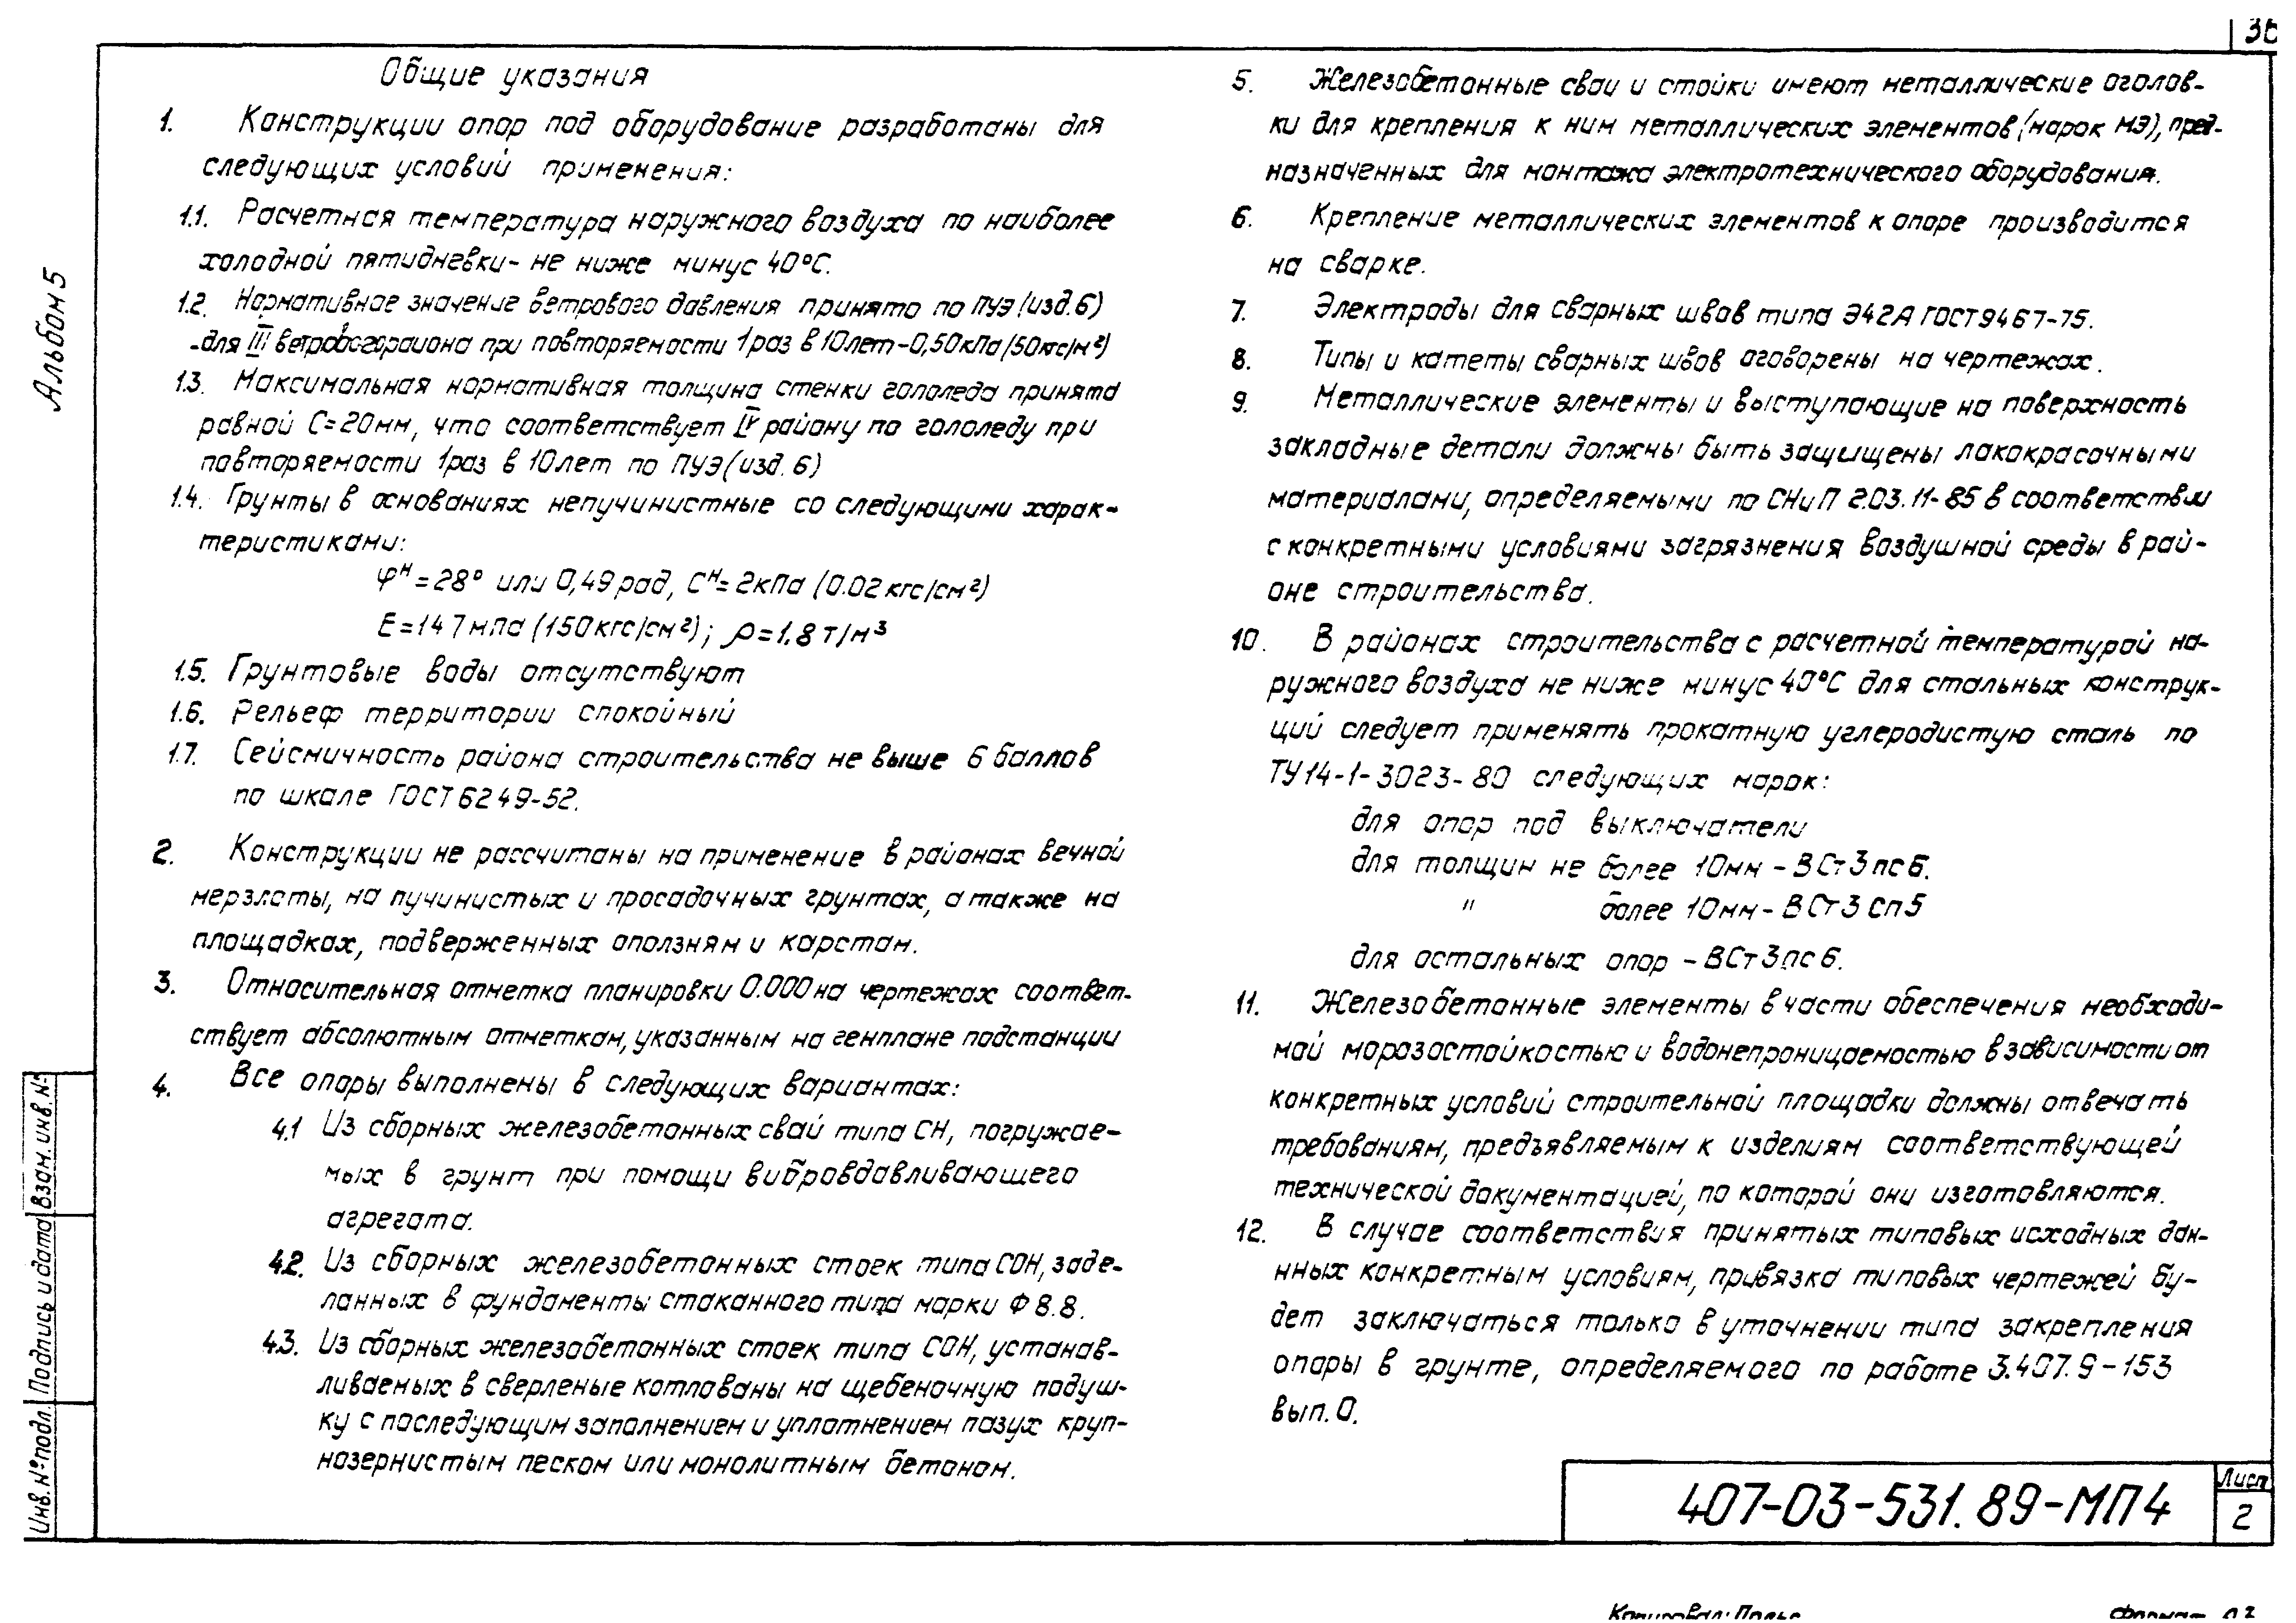 36
Альбом 5
Общие указания
1. Конструкции опор под оборудование разработаны для
следующих условий применения:
1.1. Расчетная температура наружного воздуха по наиболее
холодной пятидневки - не ниже минус 40°С.
1.2. Нормативное значение ветрового давления принято по ПУЭ (изд. 6)
для III ветрового района при повторяемости 1 раз в 10 лет - 0,50 кПа (50 кгс/м²)
1.3. Максимальная нормативная толщина стенки гололеда принята
равной С = 20 мм, что соответствует IV району по гололеду при
повторяемости 1 раз в 10 лет по ПУЭ (изд. 6)
1.4. Грунты в основаниях непучинистные со следующими харак-
теристиками:
φᴴ = 28° или 0,49 рад, Сᴴ = 2 кПа (0.02 кгс/см²)
Е = 147 мпа (150 кгс/см²); ρ = 1.8 т/м³
1.5. Грунтовые воды отсутствуют
1.6. Рельеф территории спокойный
1.7. Сейсмичность района строительства не выше 6 баллов
по шкале ГОСТ 6249-52.
2. Конструкции не рассчитаны на применение в районах вечной
мерзлоты, на пучинистых и просадочных грунтах, а также на
площадках, подверженных оползням и карстам.
3. Относительная отметка планировки 0.000 на чертежах соответ-
ствует абсолютным отметкам, указанным на генплане подстанции
4. Все опоры выполнены в следующих вариантах:
4.1 Из сборных железобетонных свай типа СН, погружае-
мых в грунт при помощи вибровдавливающего
агрегата.
4.2. Из сборных железобетонных стоек типа СОН, заде-
ланных в фундаменты стаканного типа марки Ф 8.8.
4.3. Из сборных железобетонных стоек типа СОН, устанав-
ливаемых в сверленые котлованы на щебеночную подуш-
ку с последующим заполнением и уплотнением пазух круп-
нозернистым песком или монолитным бетоном.
5. Железобетонные сваи и стойки имеют металлические оголов-
ки для крепления к ним металлических элементов (марок МЭ), пред-
назначенных для монтажа электротехнического оборудования.
6. Крепление металлических элементов к опоре производится
на сварке.
7. Электроды для сварных швов типа Э42А ГОСТ 9467-75.
8. Типы и катеты сварных швов оговорены на чертежах.
9. Металлические элементы и выступающие на поверхность
закладные детали должны быть защищены лакокрасочными
материалами, определяемыми по СНиП 2.03.11-85 в соответствии
с конкретными условиями загрязнения воздушной среды в рай-
оне строительства.
10. В районах строительства с расчетной температурой на-
ружного воздуха не ниже минус 40°С для стальных конструк-
ций следует применять прокатную углеродистую сталь по
ТУ 14-1-3023-80 следующих марок:
для опор под выключатели
для толщин не более 10 мм - ВСт3пс6.
" более 10 мм - ВСт3сп5
для остальных опор - ВСт3пс6.
11. Железобетонные элементы в части обеспечения необходи-
мой морозостойкостью и водонепроницаемостью в зависимости от
конкретных условий строительной площадки должны отвечать
требованиям, предъявляемым к изделиям соответствующей
технической документацией, по которой они изготовляются.
12. В случае соответствия принятых типовых исходных дан-
нных конкретным условиям, привязка типовых чертежей бу-
дет заключаться только в уточнении типа закрепления
опоры в грунте, определяемого по работе 3.407.9-153
вып. 0.
Взам. инв. №
Подпись и дата
Инв. № подл.
407-03-531.89-МП4
Лист
2
Копировал:
Формат